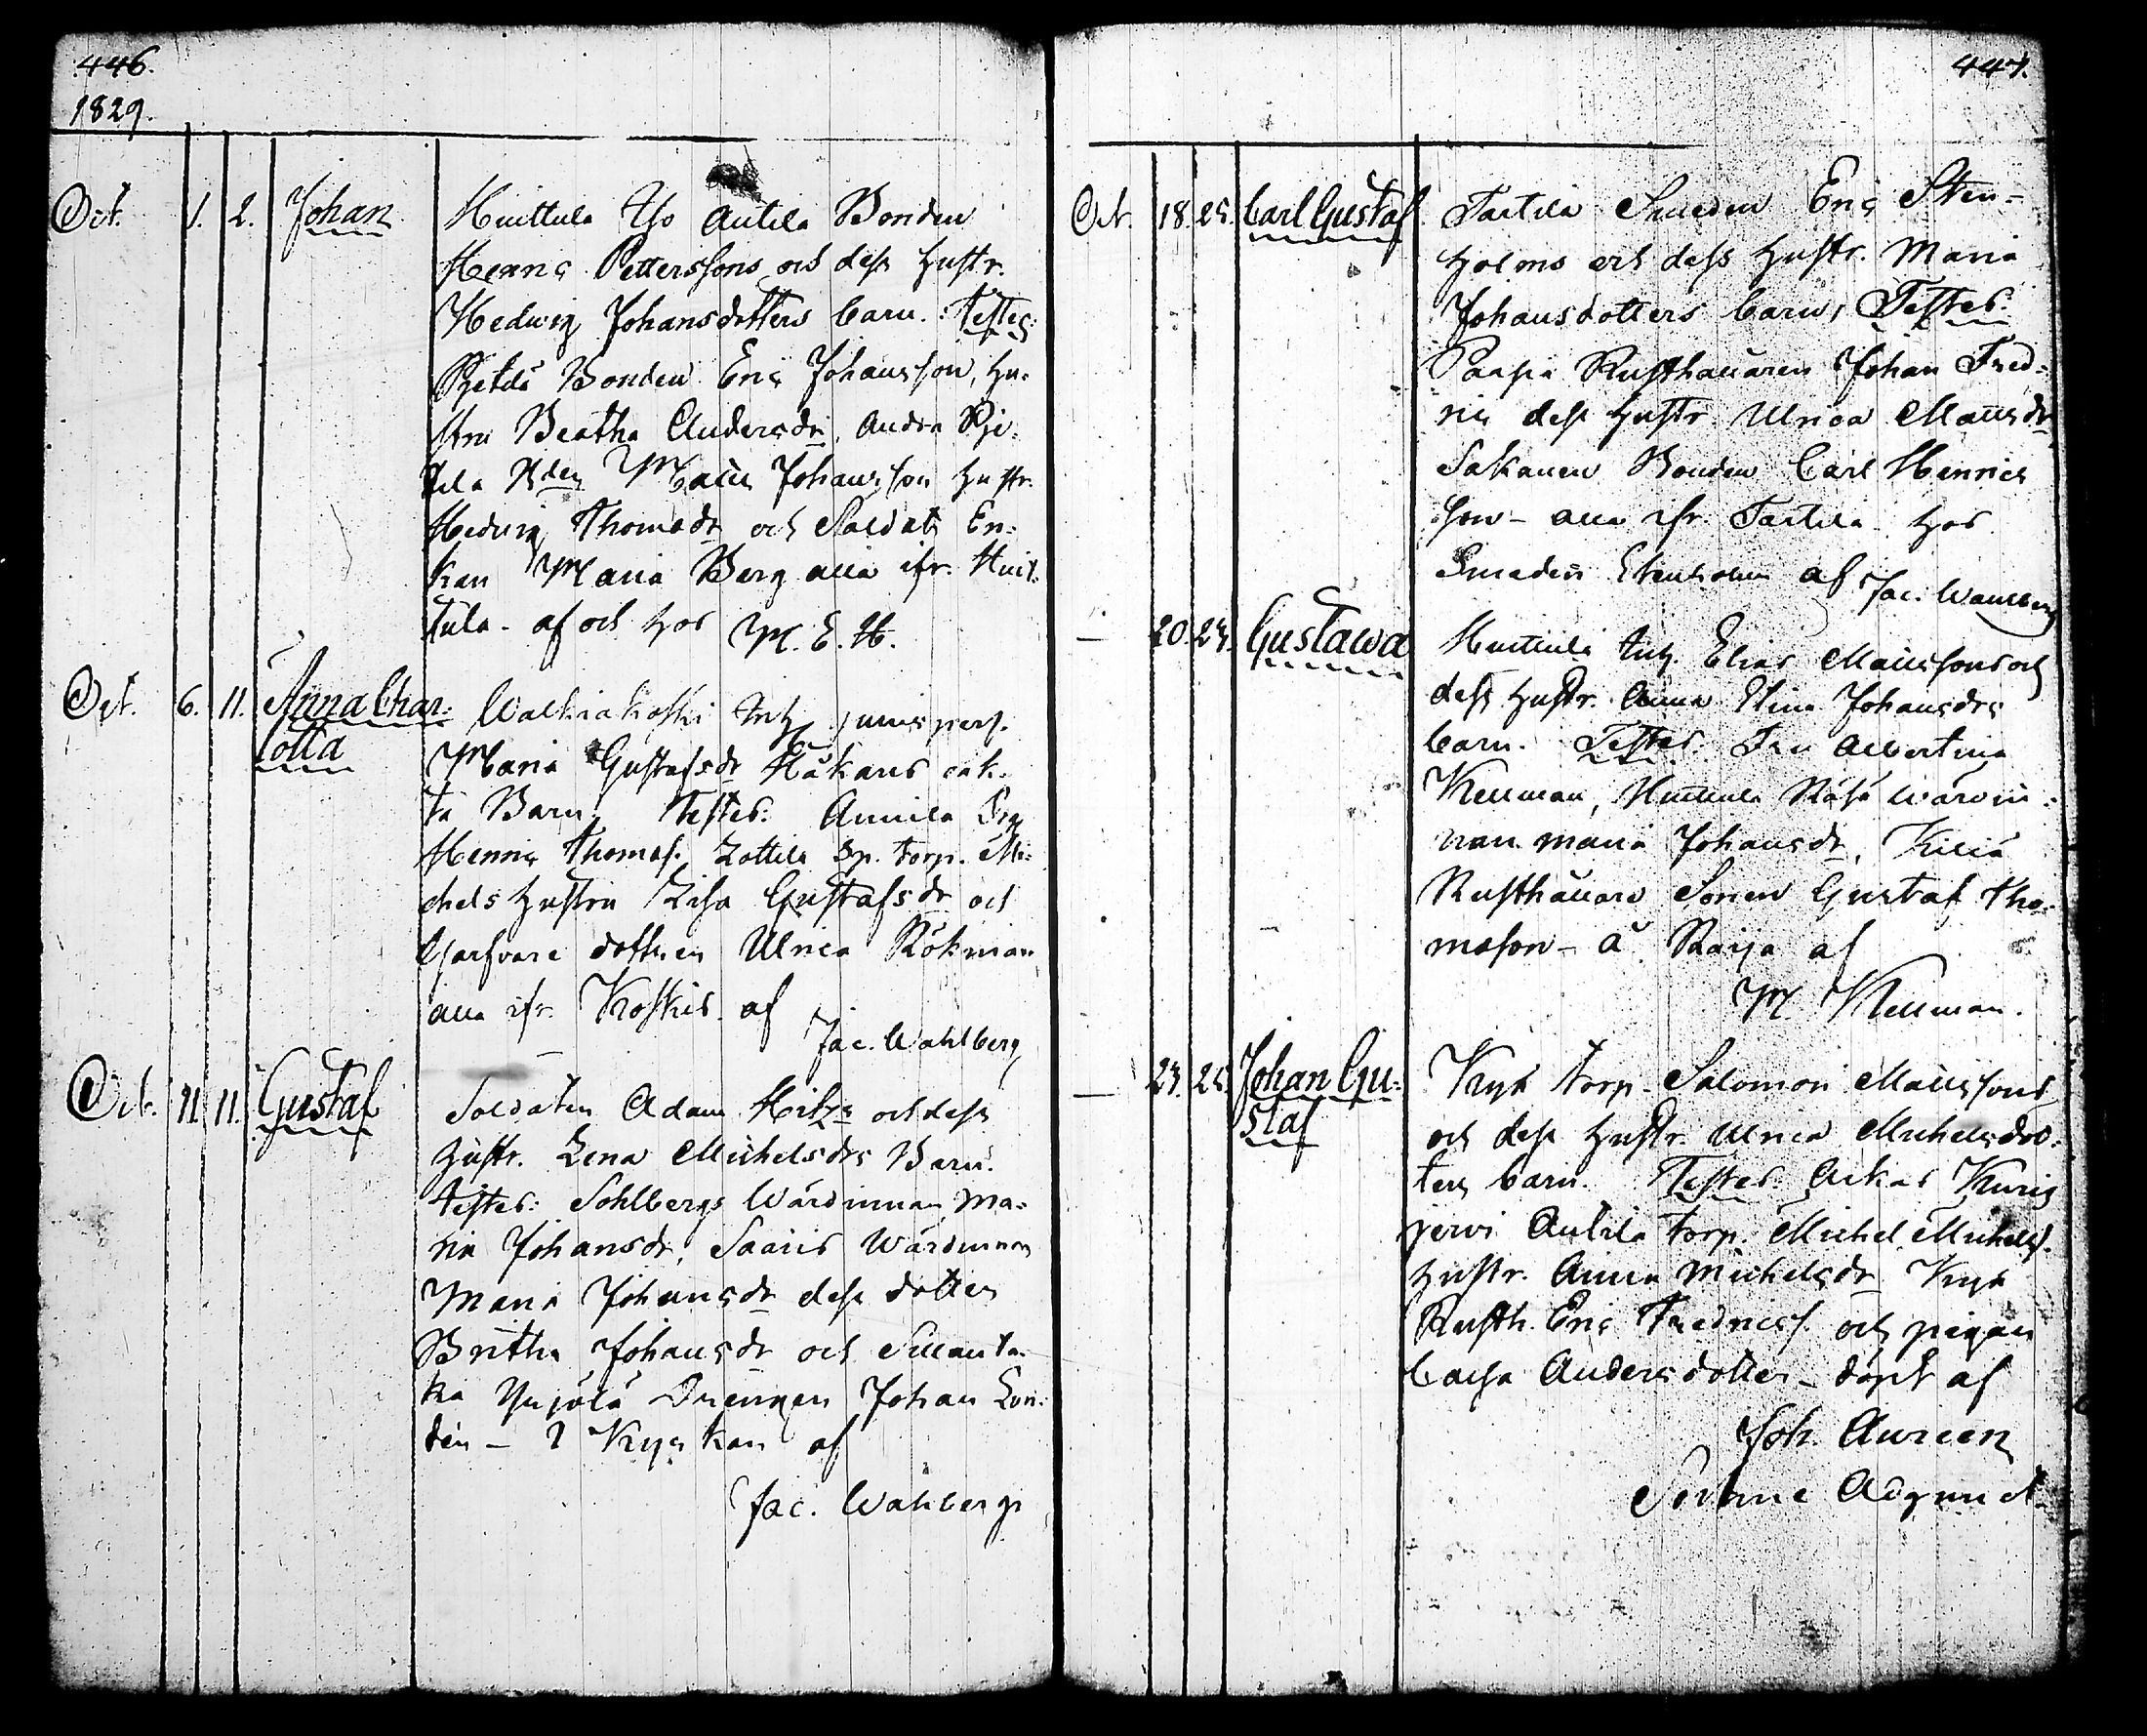 446.
1829.
Oct. 1. 2. Johan
Huittula Yso Antila Bonden
Henric Petterssons och dess hustr.
Hedwig Johansdotters barn. Testes:
Bonden Eric Johansson, hu-
stru Beatha Andersdr, Andra
Johansson hustr.
Hedwig Thomsdr och Soldats En-
kan Maria Berg alla ifr. Huit-
tula - af och hos M. E. H.
Oct. 6. 11. Anna Char-
lotta
Walkiakoski
Maria Gustafsdr Håkans oäk-
ta Barn. Testes: Annila
Henric Thomass. Zottila Sp. torp. Mi-
chels hustru Lisa Gustafsdr och
Garfvare dottren Ulrica Rökman
alla ifr. Koskis af
Jac. Wahlberg
Oct. 11. 11. Gustaf
Soldaten Adam och dess
hustr. Lena Michelsdrs Barn.
testes: Sohlbergs Wärdinnan Ma-
ria Johansdr, Saaris Wärdinnan
Maria Johansdr dess dotter
Britha Johansdr och Sillanta-
ka Yrjölä Drengen Johan Lon-
dén - I Kyrkan af
Jac. Wahlberg
447.
Oct. 18. 25. Carl Gustaf
Tarttila Smeden Eric Sten-
holms och dess hustr. Maria
Johansdotters barn, Testes:
Paapia Rusthållaren Johan Fred-
ric dess hustr. Ulrica Mattsdr
Sakanen Bonden Carl Henrics
son - alla ifr. Tarttila - hos
Smeden Stenholm af Jac. Wahlberg
— 20. 24. Gustawa
Huittula Inh. Elias Mattssons och
dess hustr. Anna Stina Johansdrs
barn. Testes: Fru Albertina
Kellman, Huittula Wärdin-
nan Maria Johansdr, Kiliä
Rusthållare Sonen Gustaf Tho-
masson - å af
M Kellman.
— 23. 25. Johan Gu-
staf
torp. Salomon Mattssons
och dess hustr. Ulrica Michelsdot-
ters barn. Testes: Arkas Kuris
jerwi Antila torp. Michel Michelss.
hustr. Anna Michelsdr
Rusth. Eric Fredricss. och pigan
Caisa Andersdotter - döpt af
Joh. Aureen
Adjunct